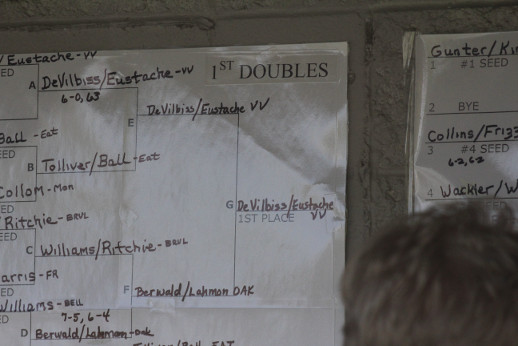 /Eustache-VV
ED
A DeVilbiss/Eustache-VV
6-0, 63
1ST DOUBLES
DeVilbiss/Eustache VV
E
Ball - Eat
ED
B Tolliver/Ball-Eat
Collom - Mon
Ritchie - BRVL
ED
G DeVilbiss/Eustache
VV
1ST PLACE
C Williams/Ritchie-BRVL
arris - FR
F Berwald/Lahmon OAK
Williams - BELL
7-5, 6-4
D Berwald/Lahmon-Oak
Gunter/Ki
1 #1 SEED
2 BYE
Collins/Frizz
3 #4 SEED
6-2, 6-2
4 Wackler/W